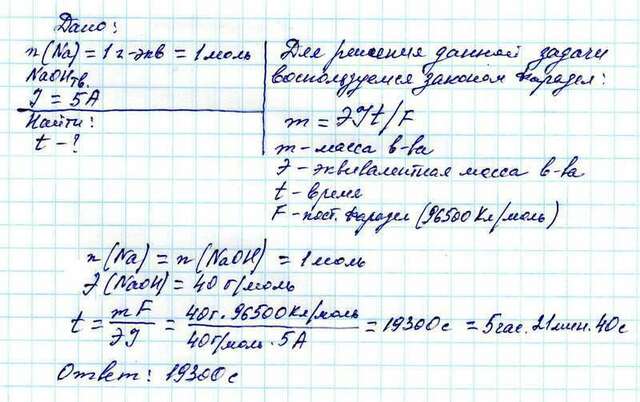 Дано:
n(Na) = 1 г-экв = 1 моль
NaOHтв.
J = 5A
Найти:
t - ?
Для решения данной задачи
воспользуемся законом Фарадея:
m = ЭJt/F
m - масса в-ва
Э - эквивалентная масса в-ва
t - время
F - пост. Фарадея (96500 Кл/моль)
n(Na) = n(NaOH) = 1 моль
Э(NaOH) = 40 г/моль
t = mF/ЭJ = 40г · 96500Кл/моль / 40г/моль · 5A = 19300с = 5час. 21мин. 40с
Ответ: 19300с